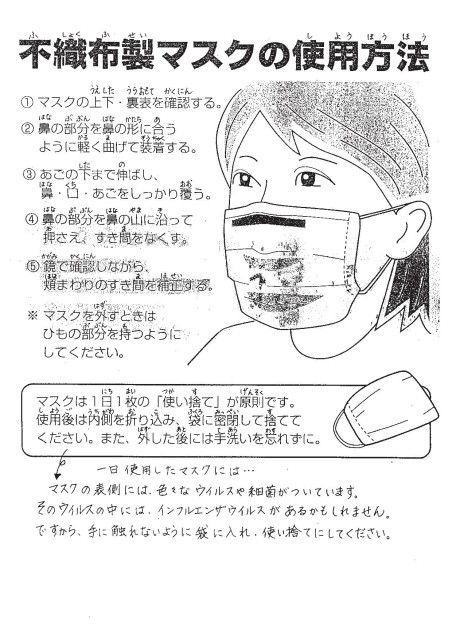 不織布製マスクの使用方法
① マスクの上下・裏表を確認する。
② 鼻の部分を鼻の形に合う
ように軽く曲げて装着する。
③ あごの下まで伸ばし、
鼻・口・あごをしっかり覆う。
④ 鼻の部分を鼻の山に沿って
押さえ、すき間をなくす。
⑤ 鏡で確認しながら、
頬まわりのすき間を補正する。
※ マスクを外すときは
ひもの部分を持つように
してください。
マスクは1日1枚の「使い捨て」が原則です。
使用後は内側を折り込み、袋に密閉して捨てて
ください。また、外した後には手洗いを忘れずに。
一日使用したマスクには…
マスクの表側には、色々なウイルスや細菌がついています。
そのウイルスの中には、インフルエンザウイルスがあるかもしれません。
ですから、手に触れないように袋に入れ、使い捨てにしてください。